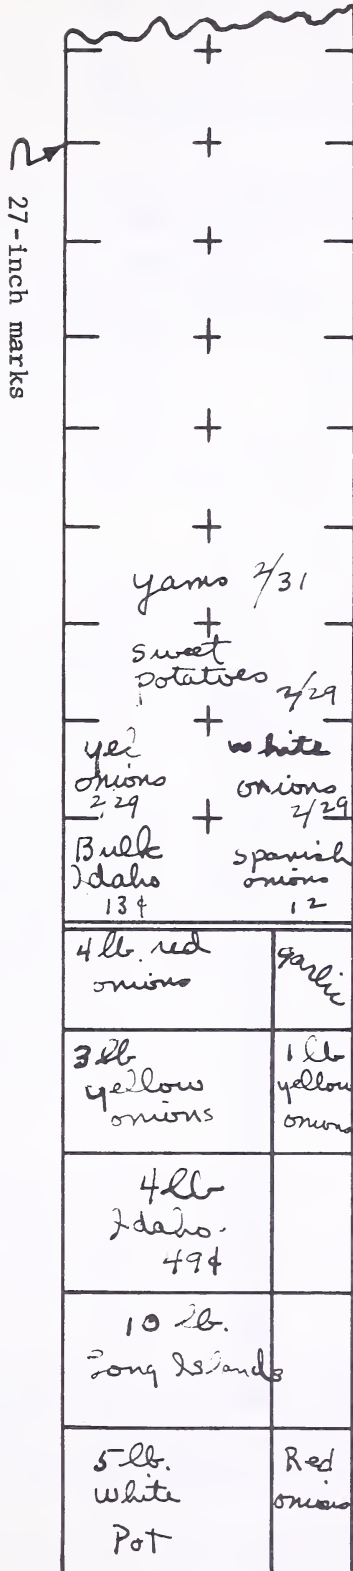 27-inch marks
yams 2/31
sweet
potatoes 2/29
yel
onions
2/29
white
onions
2/29
Bulk
Idaho
13¢
spanish
onions
12
4 lb. red
onions
garlic
3 lb
yellow
onions
1 lb
yellow
onions
4 lb
Idaho.
49¢
10 lb.
Long Islands
5 lb.
white
Pot
Red
onions